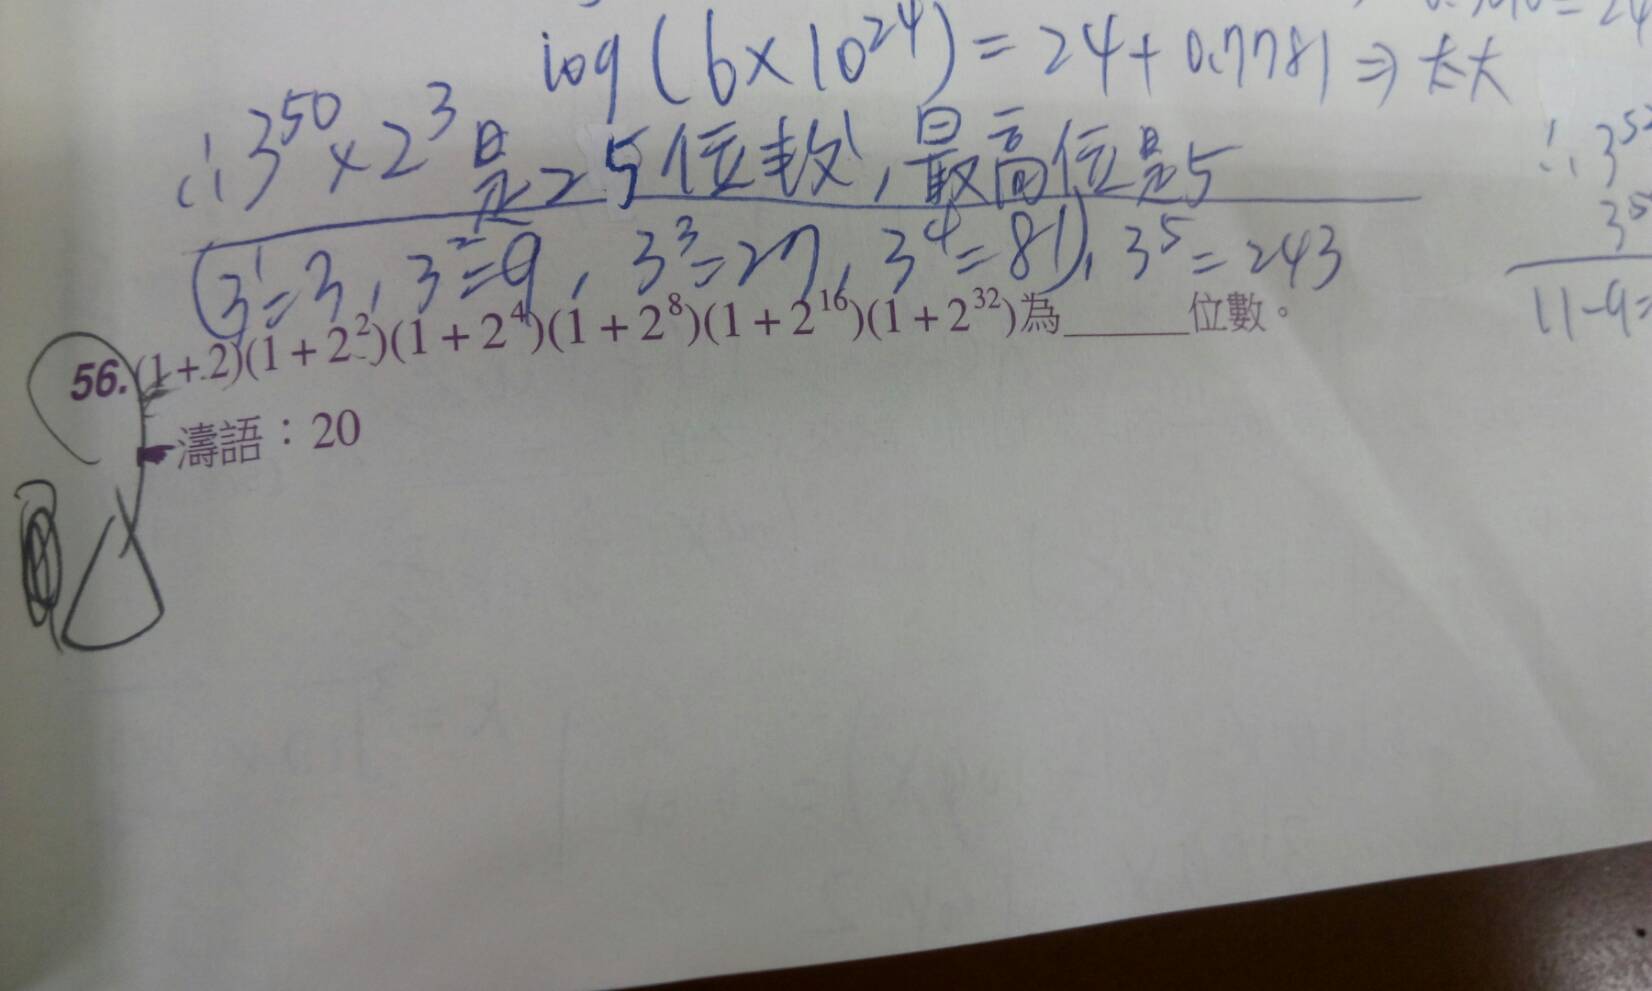 log(6×10²⁴)=24+0.7781⇒太大
∴3⁵⁰×2³是25位數,最高位是5
(3¹=3, 3²=9, 3³=27, 3⁴=81), 3⁵=243
56.(1+2)(1+2²)(1+2⁴)(1+2⁸)(1+2¹⁶)(1+2³²)為______位數。
☛濤語：20